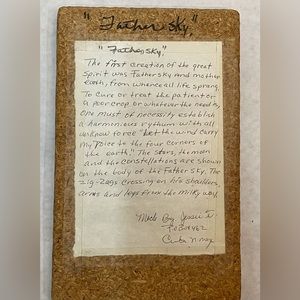 "Father Sky"
"Father Sky"
The first creation of the great
spirit was Father sky and mother
earth, from whence all life sprang.
To cure or treat the patient or
a poor crop or whatever the need is,
one must of necessity establish
a harmonious rythum with all
unknow force "Let the wind carry
my voice to the four corners of
the earth". The stars, the moon
and the constellations are shown
on the body of the Father sky. The
zig-zags crossing on his shoulders,
arms and legs from the milky way.
Made By. Jessie T.
P.O. Box 462
Cuba N. mex